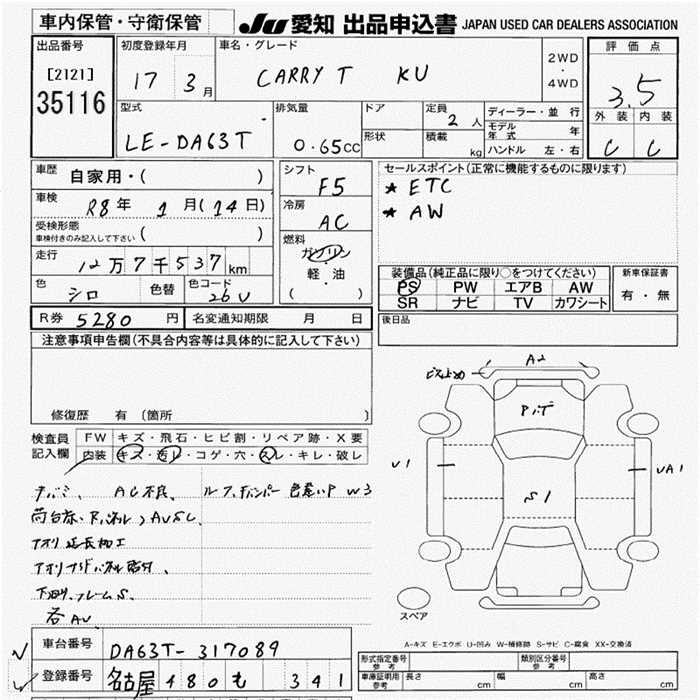 車内保管・守衛保管
JU 愛知 出品申込書 JAPAN USED CAR DEALERS ASSOCIATION
出品番号
[2121]
35116
初度登録年月
17 3月
車名・グレード
CARRY T KU
2WD
・
4WD
評価点
3.5
外装 内装
C C
型式
LE-DA63T
排気量
0.65cc
ドア
形状
定員
2人
積載
kg
ディーラー・並行
モデル年式 年
ハンドル 左・右
車歴
自家用・( )
車検
R8年 1月(14日)
受検形態
車検付きのみ記入して下さい ( )
走行
12万7千537km
色
シロ
色替
色コード
26U
シフト
F5
冷房
AC
燃料
ガソリン
・
軽・油
( )
セールスポイント(正常に機能するものに限ります)
★ ETC
★ AW
装備品(純正品に限り○をつけてください)
PS PW エアB AW
SR ナビ TV カワシート
新車保証書
有・無
R券 5280円
名変通知期限 月 日
後日品
注意事項申告欄(不具合内容等は具体的に記入して下さい)
修復歴 有(箇所 )
検査員
記入欄
FW キズ・飛石・ヒビ割・リペア跡・X要
内装 キズ・汚レ・コゲ・穴・スレ・キレ・破レ
AC不良、
色違いP W3
アオリ延長加工
下廻り、フレームS.
各AU
A2
U1
S1
UA1
スペア
A-キズ E-エクボ U-凹み W-補修跡 S-サビ C-腐食 XX-交換済
車台番号
DA63T-317089
登録番号
名古屋 480 も 341
形式指定番号
参考
類別区分番号
参考
車庫証明用
参考
長さ cm
幅 cm
高さ cm